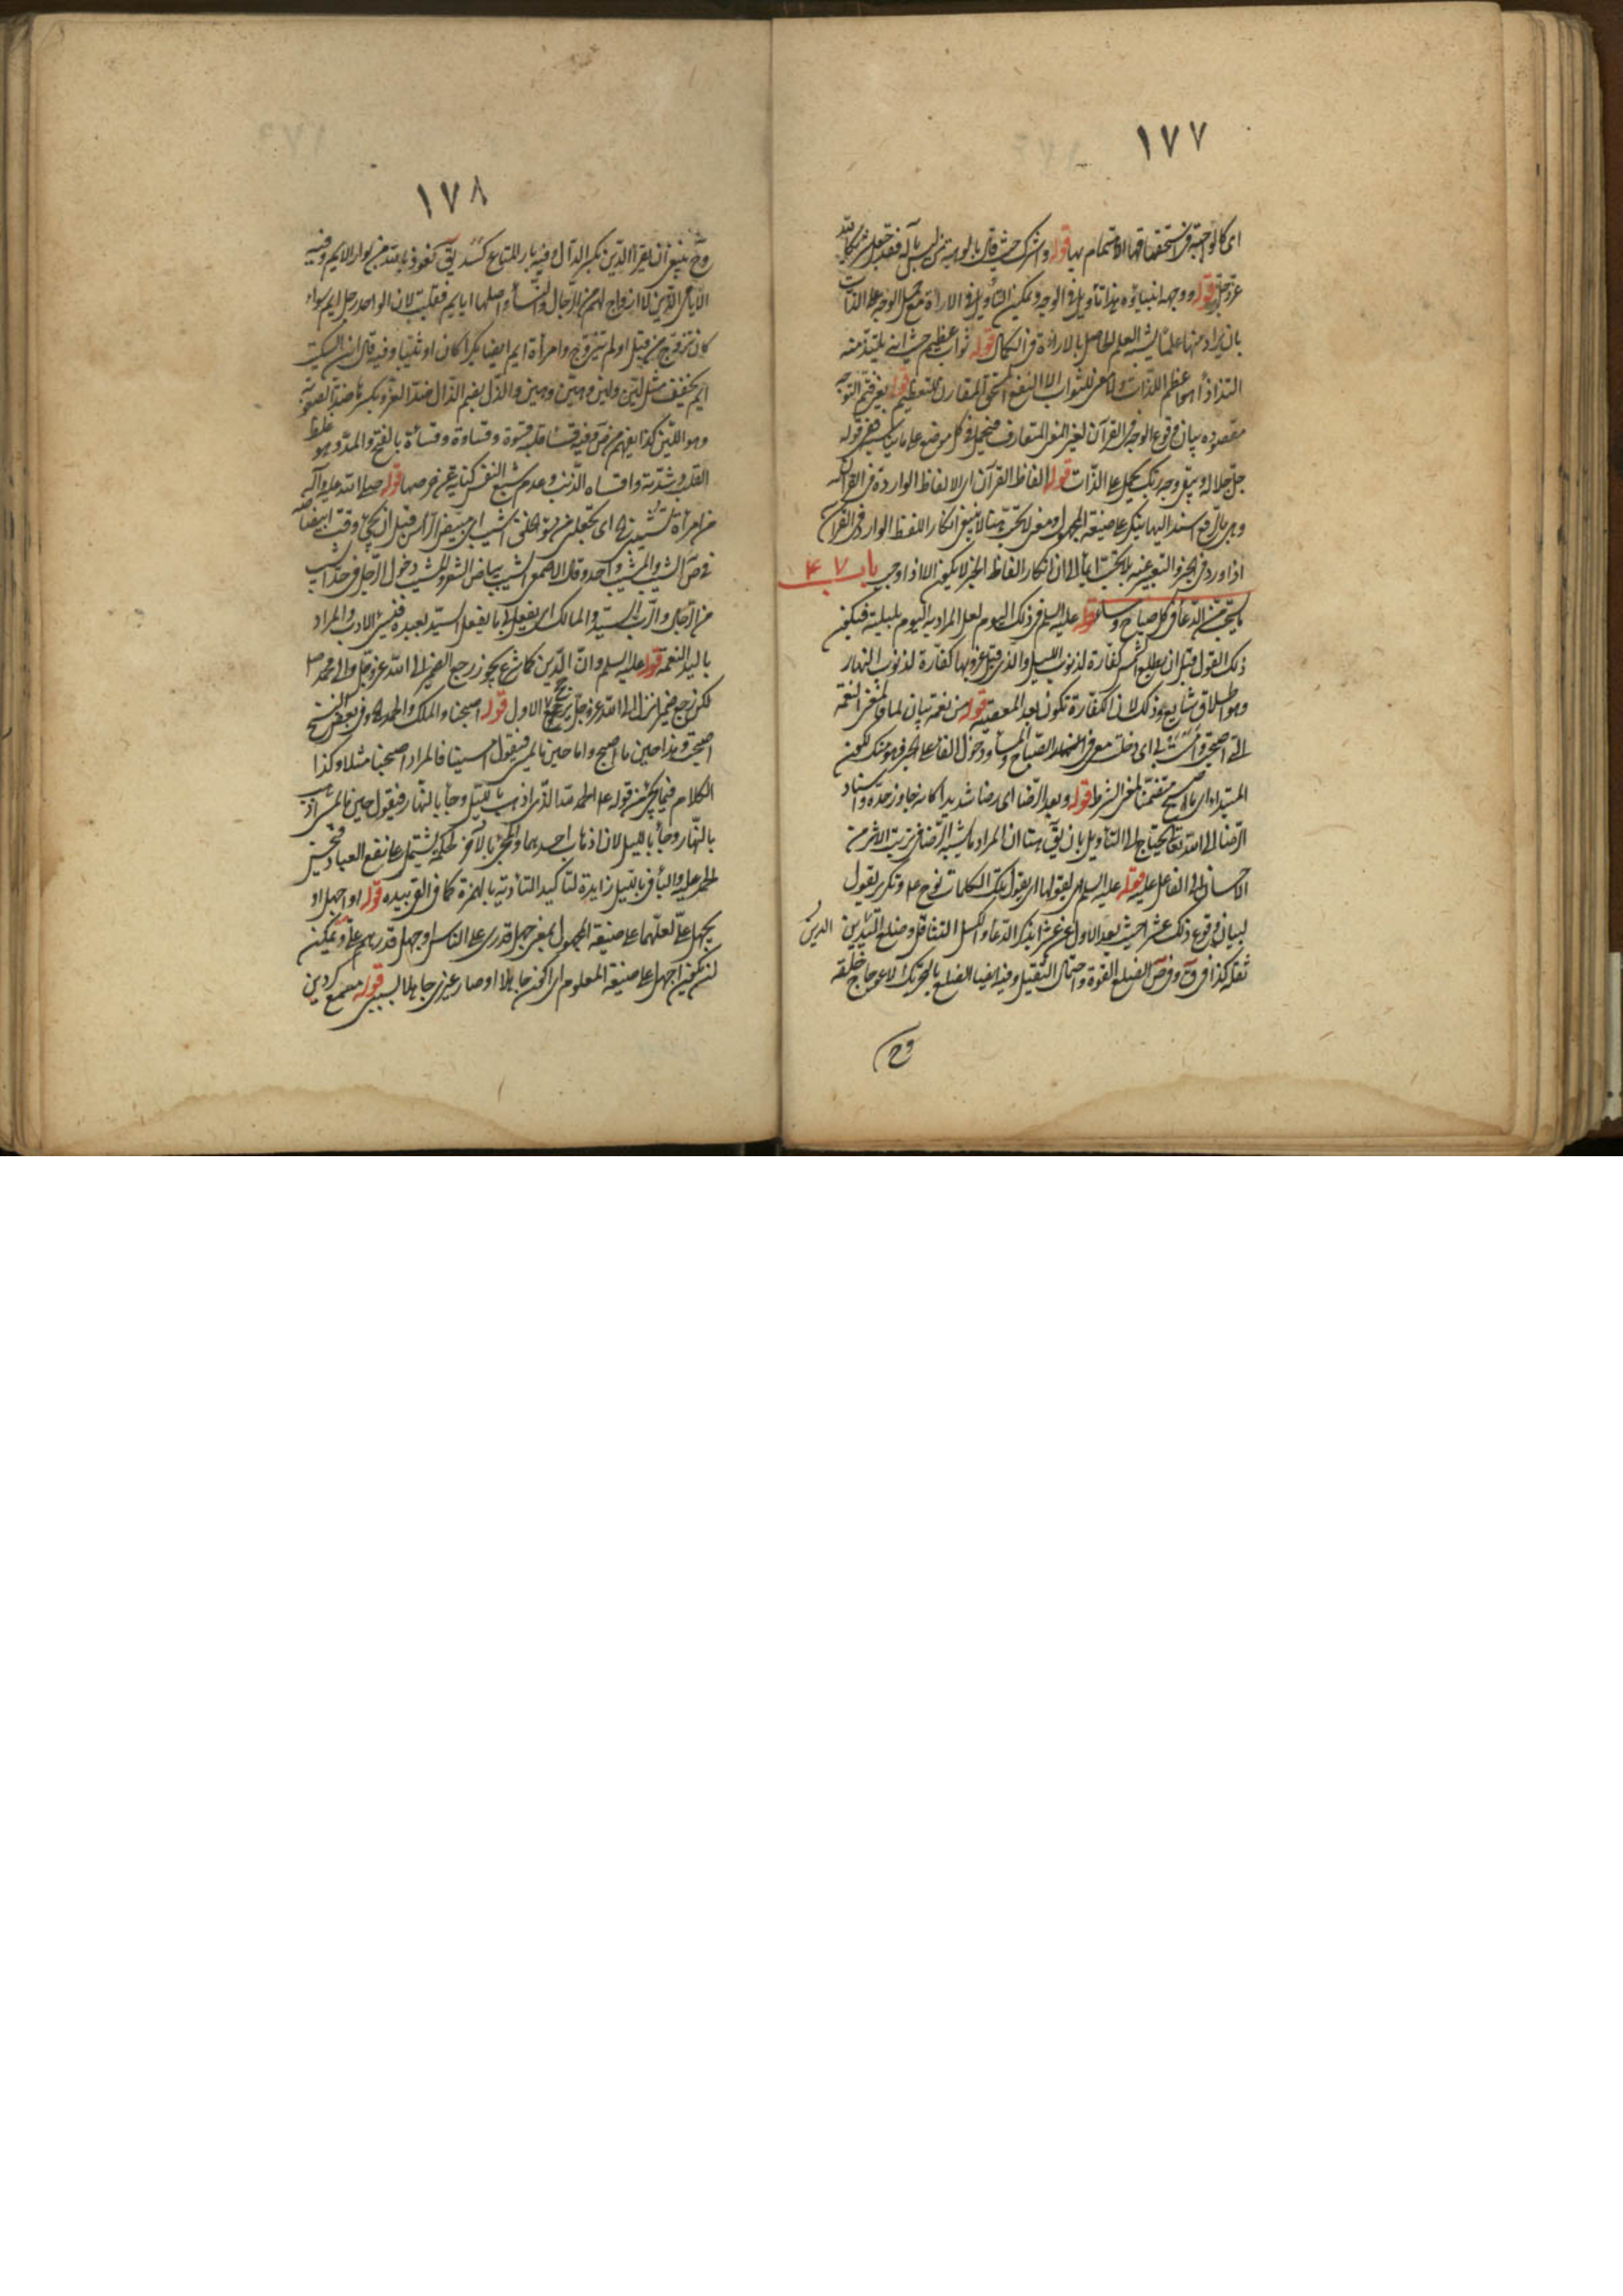 ١٧٧
قوله واشرك حيث قال بالوهية من ليس بآله فقد جعل شريكا لله
عز وجل قوله ووجهه انبياؤه هذا تأويل في الوجه ويمكن التأويل في الارادة مع حمل الوجه على الذات
بان يراد منها علمنا يشبه العلم الحاصل بالارادة في الكمال قوله ثواب عظيم حيث انه يلتذ منه
التذاذا هو اعظم اللذات ولا معنى للثواب الا النفع المستحق المقارن للتعظيم قوله
مقصوده بيان وقوع الوجه في القرآن لغير المعنى المتعارف فيحمل في كل موضع على ما يناسبه فمعنى قوله
جل جلاله ويبقى وجه ربك يحمل على الذات قوله الفاظ القرآن اى الالفاظ الواردة في القرآن
ينكر على صيغة المجهول ومعنى لا ينبغي انكار اللفظ الوارد في القرآن
اذا ورد في الخبر والتعبير عنه الفاظ الخبر لا يكون الا اذا وجب باب ٤٧
ما يستحب من الدعاء في كل صباح ومساء قوله عليه السلم في ذلك اليوم لعل المراد به اليوم بليلته فيكون
ذلك القول قبل ان يطلع الشمس كفارة لذنوب الليل والذي قبل غروبها كفارة لذنوب النهار
وهو اطلاق شايع وذلك لان الكفارة تكون بعد المعصية قوله من نعمة بيان لما والمعنى النعمة
التى اصبحت وامست بى اى دخلت معى في الصباح والمساء ودخول الفاء على الخبر فهو منك لكون
المبتداء اى ما اصبح متضمنا لمعنى الشرط قوله وبعد الرضا اى رضا شديدا كانه جاوز حده واسناد
الرضا الى الله تعالى يحتاج الى التأويل بان المراد ما يشبه الرضا في ترتب الاثر من
الاحسان الى الفاعل عليه قوله عليه السلم يقولها اى يقول تلك الكلمات نوح وتكرير يقول
لبيان وقوع ذلك عشرا حيث بعد الاول عن عشرا بذكر الدعاء والكسل التثاقل وضلع الدين
ثقله كذا في وفي ص الضلع القوة واحتمال الثقيل وفيه ايضا الضلع بالتحريك الاعوجاج خلقة
وح
١٧٨
وح ينبغي ان يقرأ الدين بكسر الدال وفيه بار المتاع كسد يق نعوذ بالله من بوار الايم وفيه
الايامى الذين لا ازواج لهم من الرجال والنساء واصلها ايايم فقلبت لان الواحد رجل ايم سواء
كان تزوج من قبل او لم يتزوج وامرأة ايم ايضا بكرا كان او ثيبا وفيه قال ابن السكيت
ايم يخفف مثل لين ولين وهين وهين والذل بضم الذال ضد العز وبكسرها ضد الصعوبة
وهو اللين كذا يفهم من ص وفيه قسا قلبه قسوة وقساوة وقساءة بالفتح والمد وهو غلظ
القلب وشدته واقساه الذنب وعدم شبع النفس كناية عن حرصها قوله صلى الله عليه وآله
من امرأة تشيبنى اى تجعلنى من سوء خلقي اشيب اى مبيض الرأس قبل ان يجئ وقت ابيضاضه
في ص الشيب والمشيب واحد وقال الاصمعي الشيب بياض الشعر والمشيب دخول الرجل في حد الشيب
من الرجال والرب السيد والمالك اى يفعل بى ما يفعل السيد بعبده فيسئ الادب والمراد
باليد النعمة قوله عليه السلم وان الدين كما شرع يجوز رجع الضمير الى الله عز وجل والى محمد ص
لكن رجع ضمير انزل الى الله عز وجل يرجح الاول قوله اصبحنا والملك والحمد وفي بعض النسخ
اصبحت وهذا حين ما اصبح واما حين ما يمسي فيقول امسينا فالمراد اصبحنا مثلا وكذا
الكلام فيما يجئ من قوله الحمد لله الذي اذهب بالليل وجاء بالنهار فيقول حين ما يمسي اذهب
بالنهار وجاء بالليل لان اذهاب احدهما والمجئ بالآخر لحكمة يشتمل على نفع العباد فيحسن
الحمد عليه والباء في بالليل زايدة لتأكيد التأدية بالهمزة كما في القى بيده قوله او اجهل او
يجهل على لعلهما على صيغة المجهول بمعنى جهل قدرى على الناس او جهل قدرهم على ويمكن
ان يكون اجهل على صيغة المعلوم اى اكون جاهلا او صار غيرى جاهلا بسببى قوله مسمع كردين